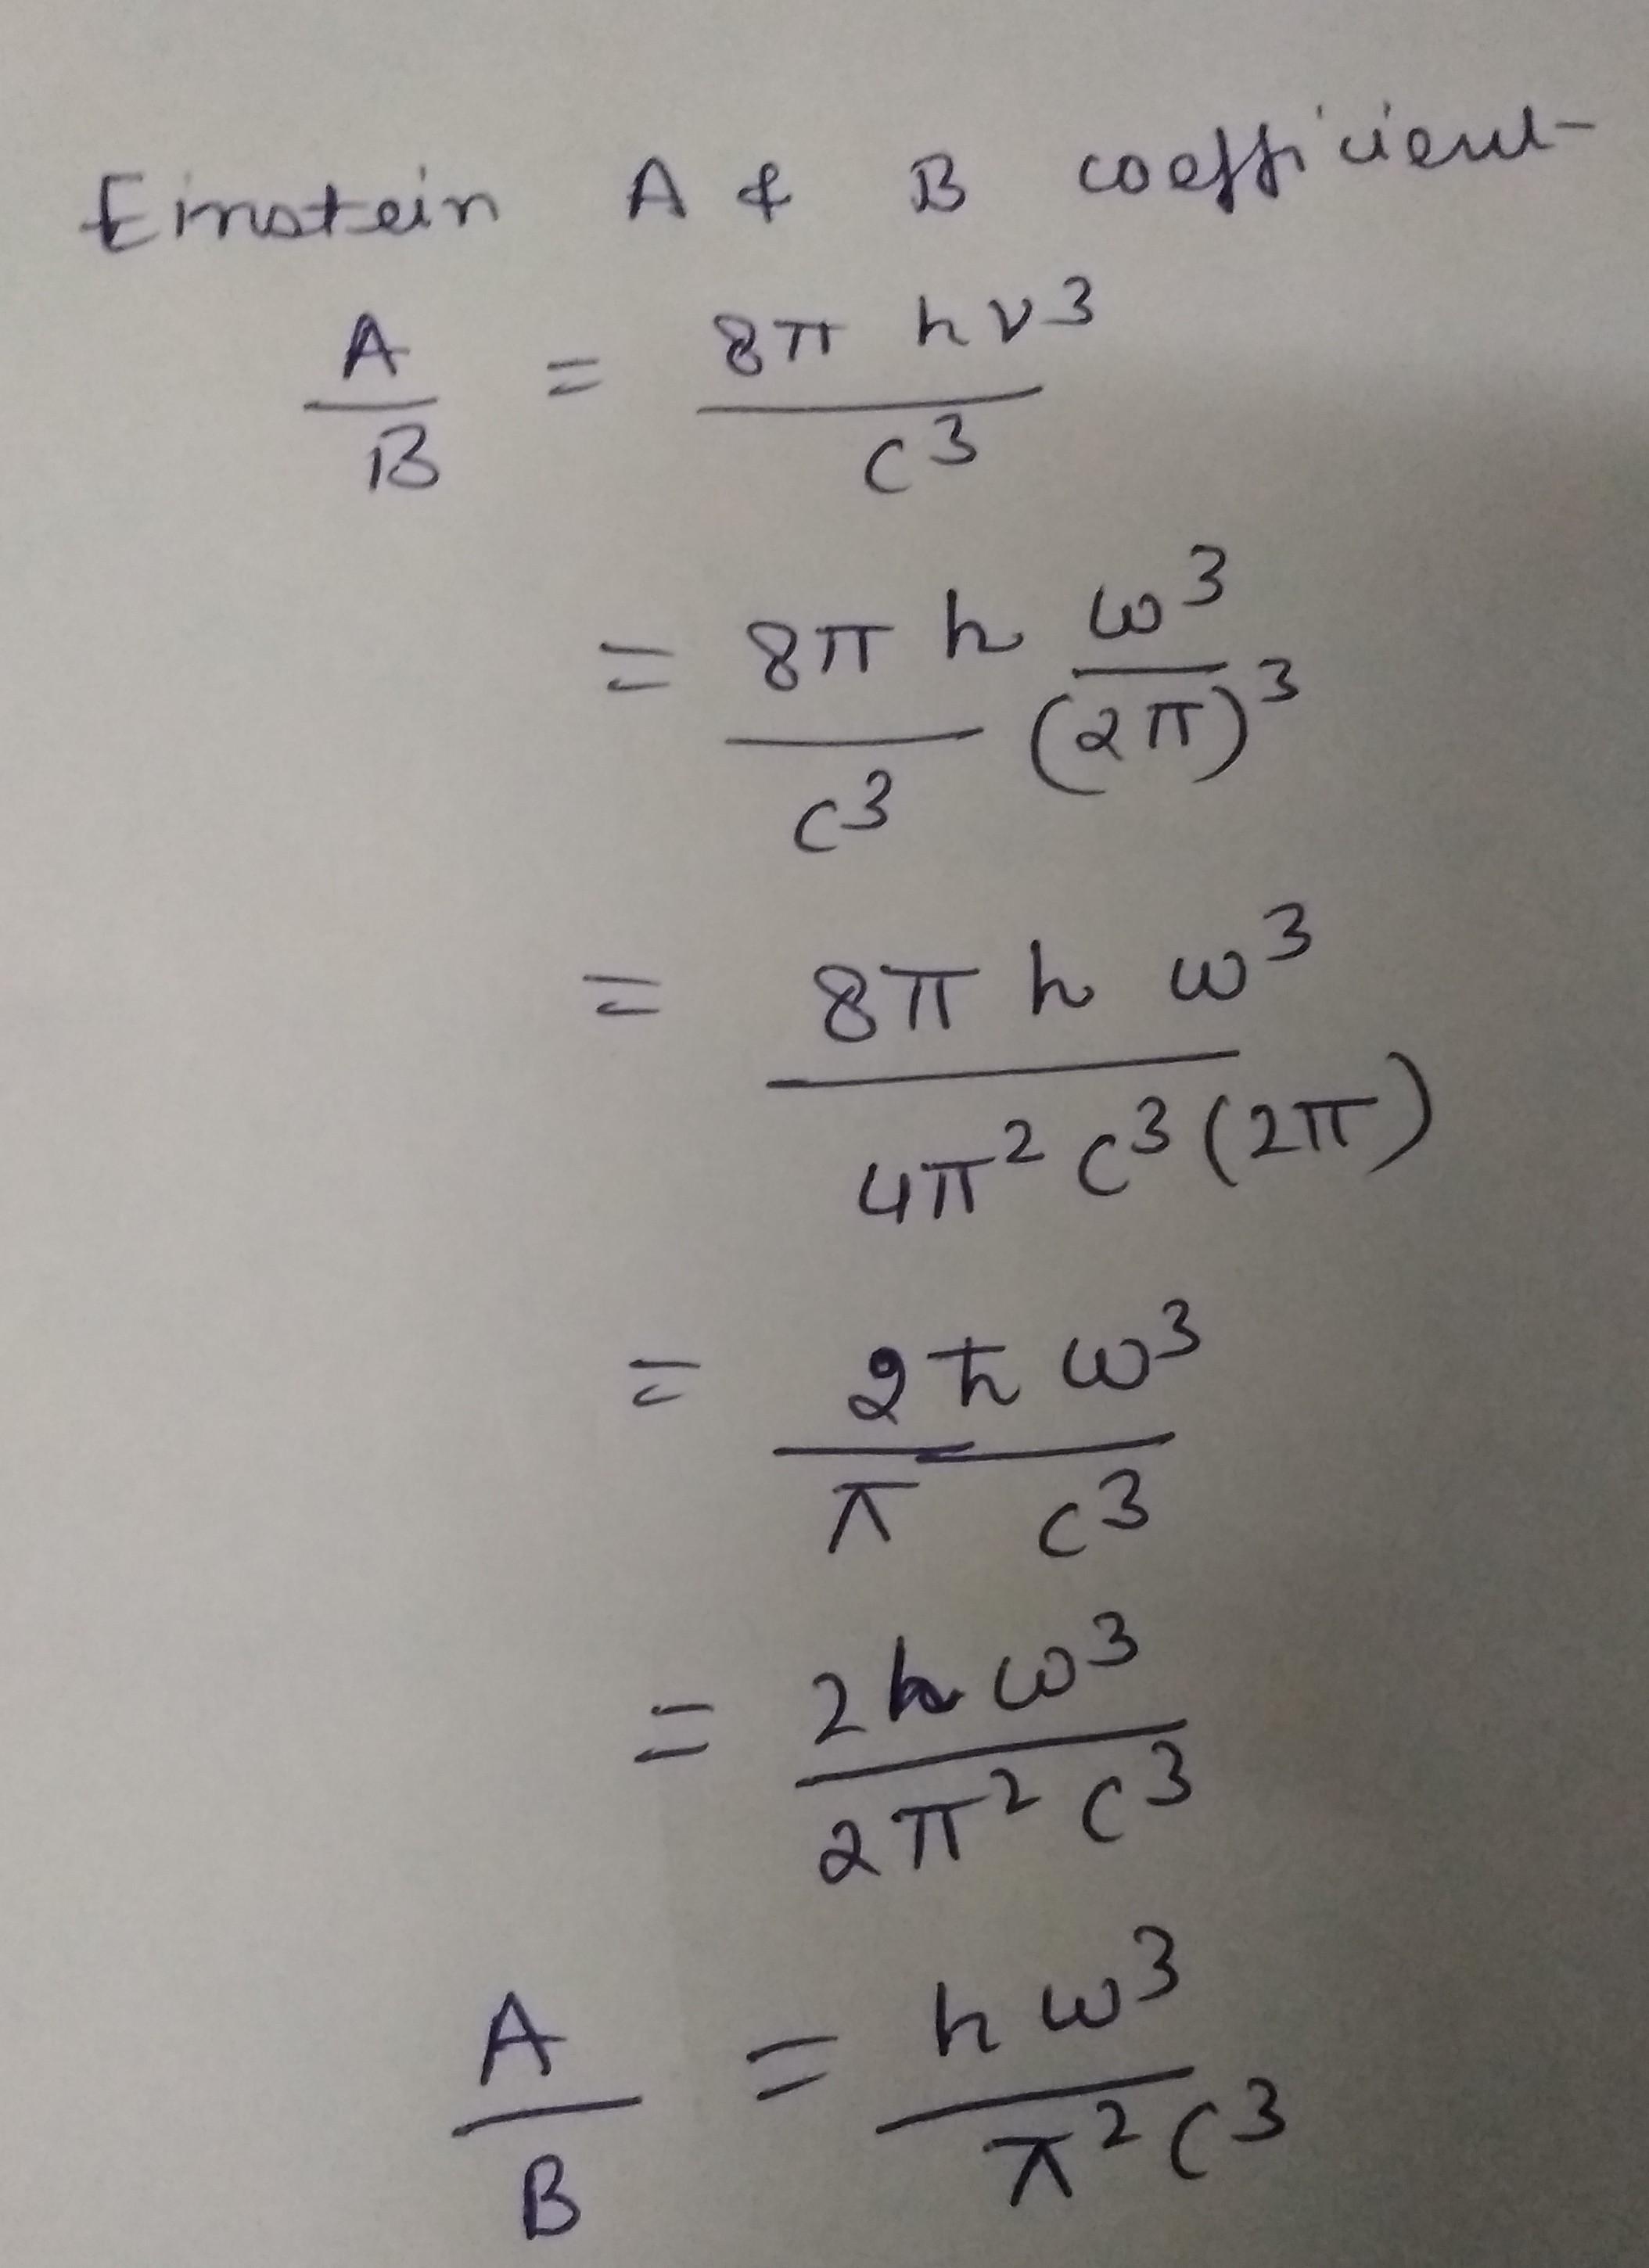 Einstein A & B coefficient
A/B = 8π hν³ / c³
= 8π h / c³ ω³ / (2π)³
= 8π h ω³ / 4π² c³ (2π)
= 2 ħ ω³ / π c³
= 2 h ω³ / 2π² c³
A/B = h ω³ / π² c³